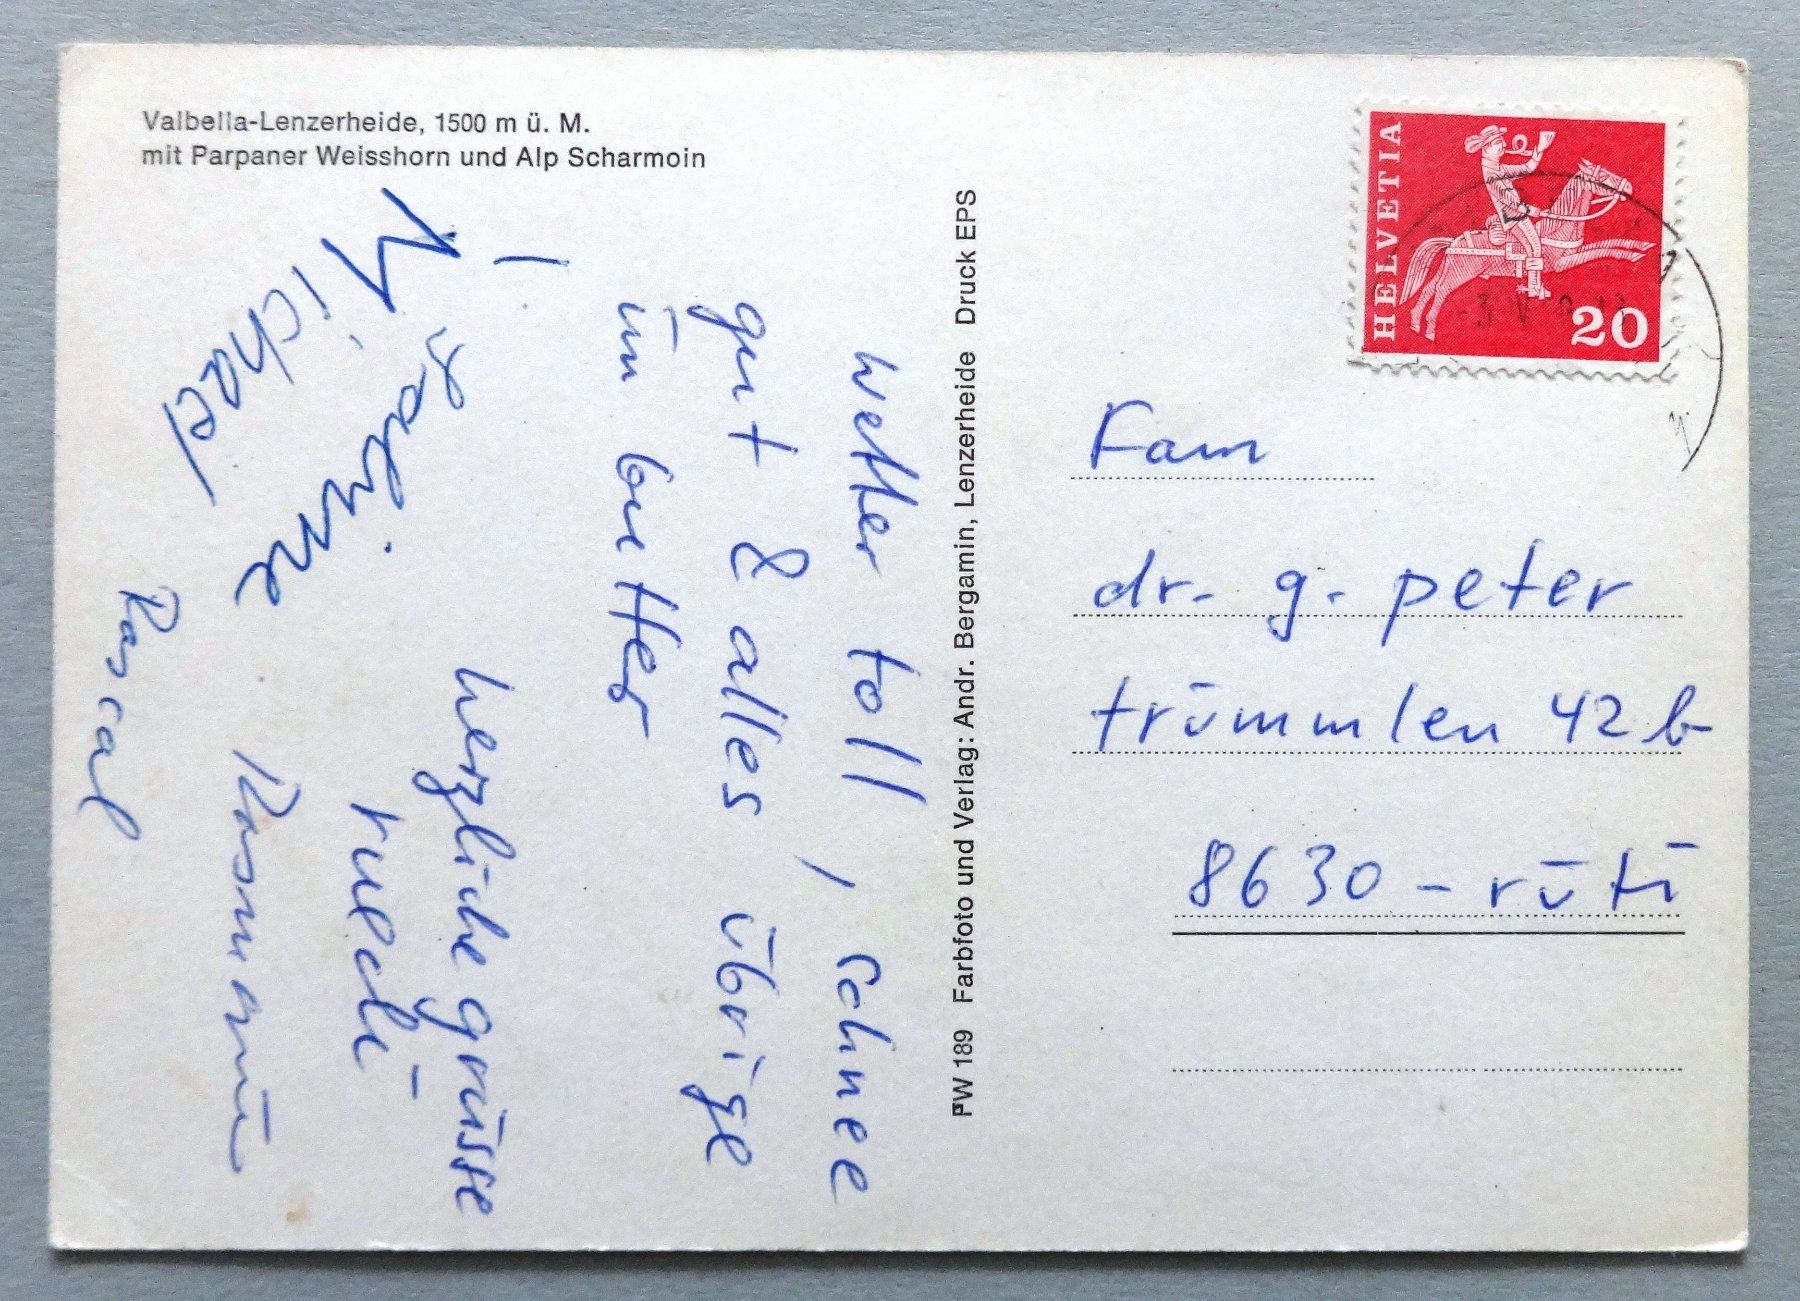 Valbella-Lenzerheide, 1500 m ü. M.
mit Parpaner Weisshorn und Alp Scharmoin
wetter toll, schnee
gut & alles übrige
in butter!
herzliche grüsse
ruedi
Michael
Rosmarin
Pascal
FW 189 Farbfoto und Verlag: Andr. Bergamin, Lenzerheide Druck EPS
HELVETIA
20
Fam
dr. g. peter
trümmlen 42 b
8630 - rüti